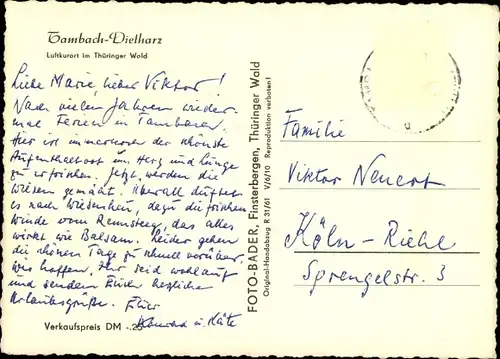 Tambach-Dietharz
Luftkurort im Thüringer Wald
Liebe Marie, lieber Viktor!
Nach vielen Jahren wieder-
mal Ferien in Tambach.
Hier ist immer der schönste
Aufenthaltsort um Herz und Lunge
zu erfrischen. Jetzt werden die
Wiesen gemäht. Überall duftet
es nach Wiesenheu, dazu die frischen
Winde vom Rennsteig, das alles
wirkt wie Balsam. Leider gehen
die schönen Tage zu schnell vorüber.
Wir hoffen, Ihr seid wohlauf
und senden Euch herzliche
Urlaubsgrüße. Eure
u. Käte
Verkaufspreis DM -.25
FOTO-BÄDER, Finsterbergen, Thüringer Wald
Original-Handabzug R 31/61 V/6/10 Reproduktion verboten!
Familie
Viktor Neuert
Köln-Riehl
Sprengelstr. 3